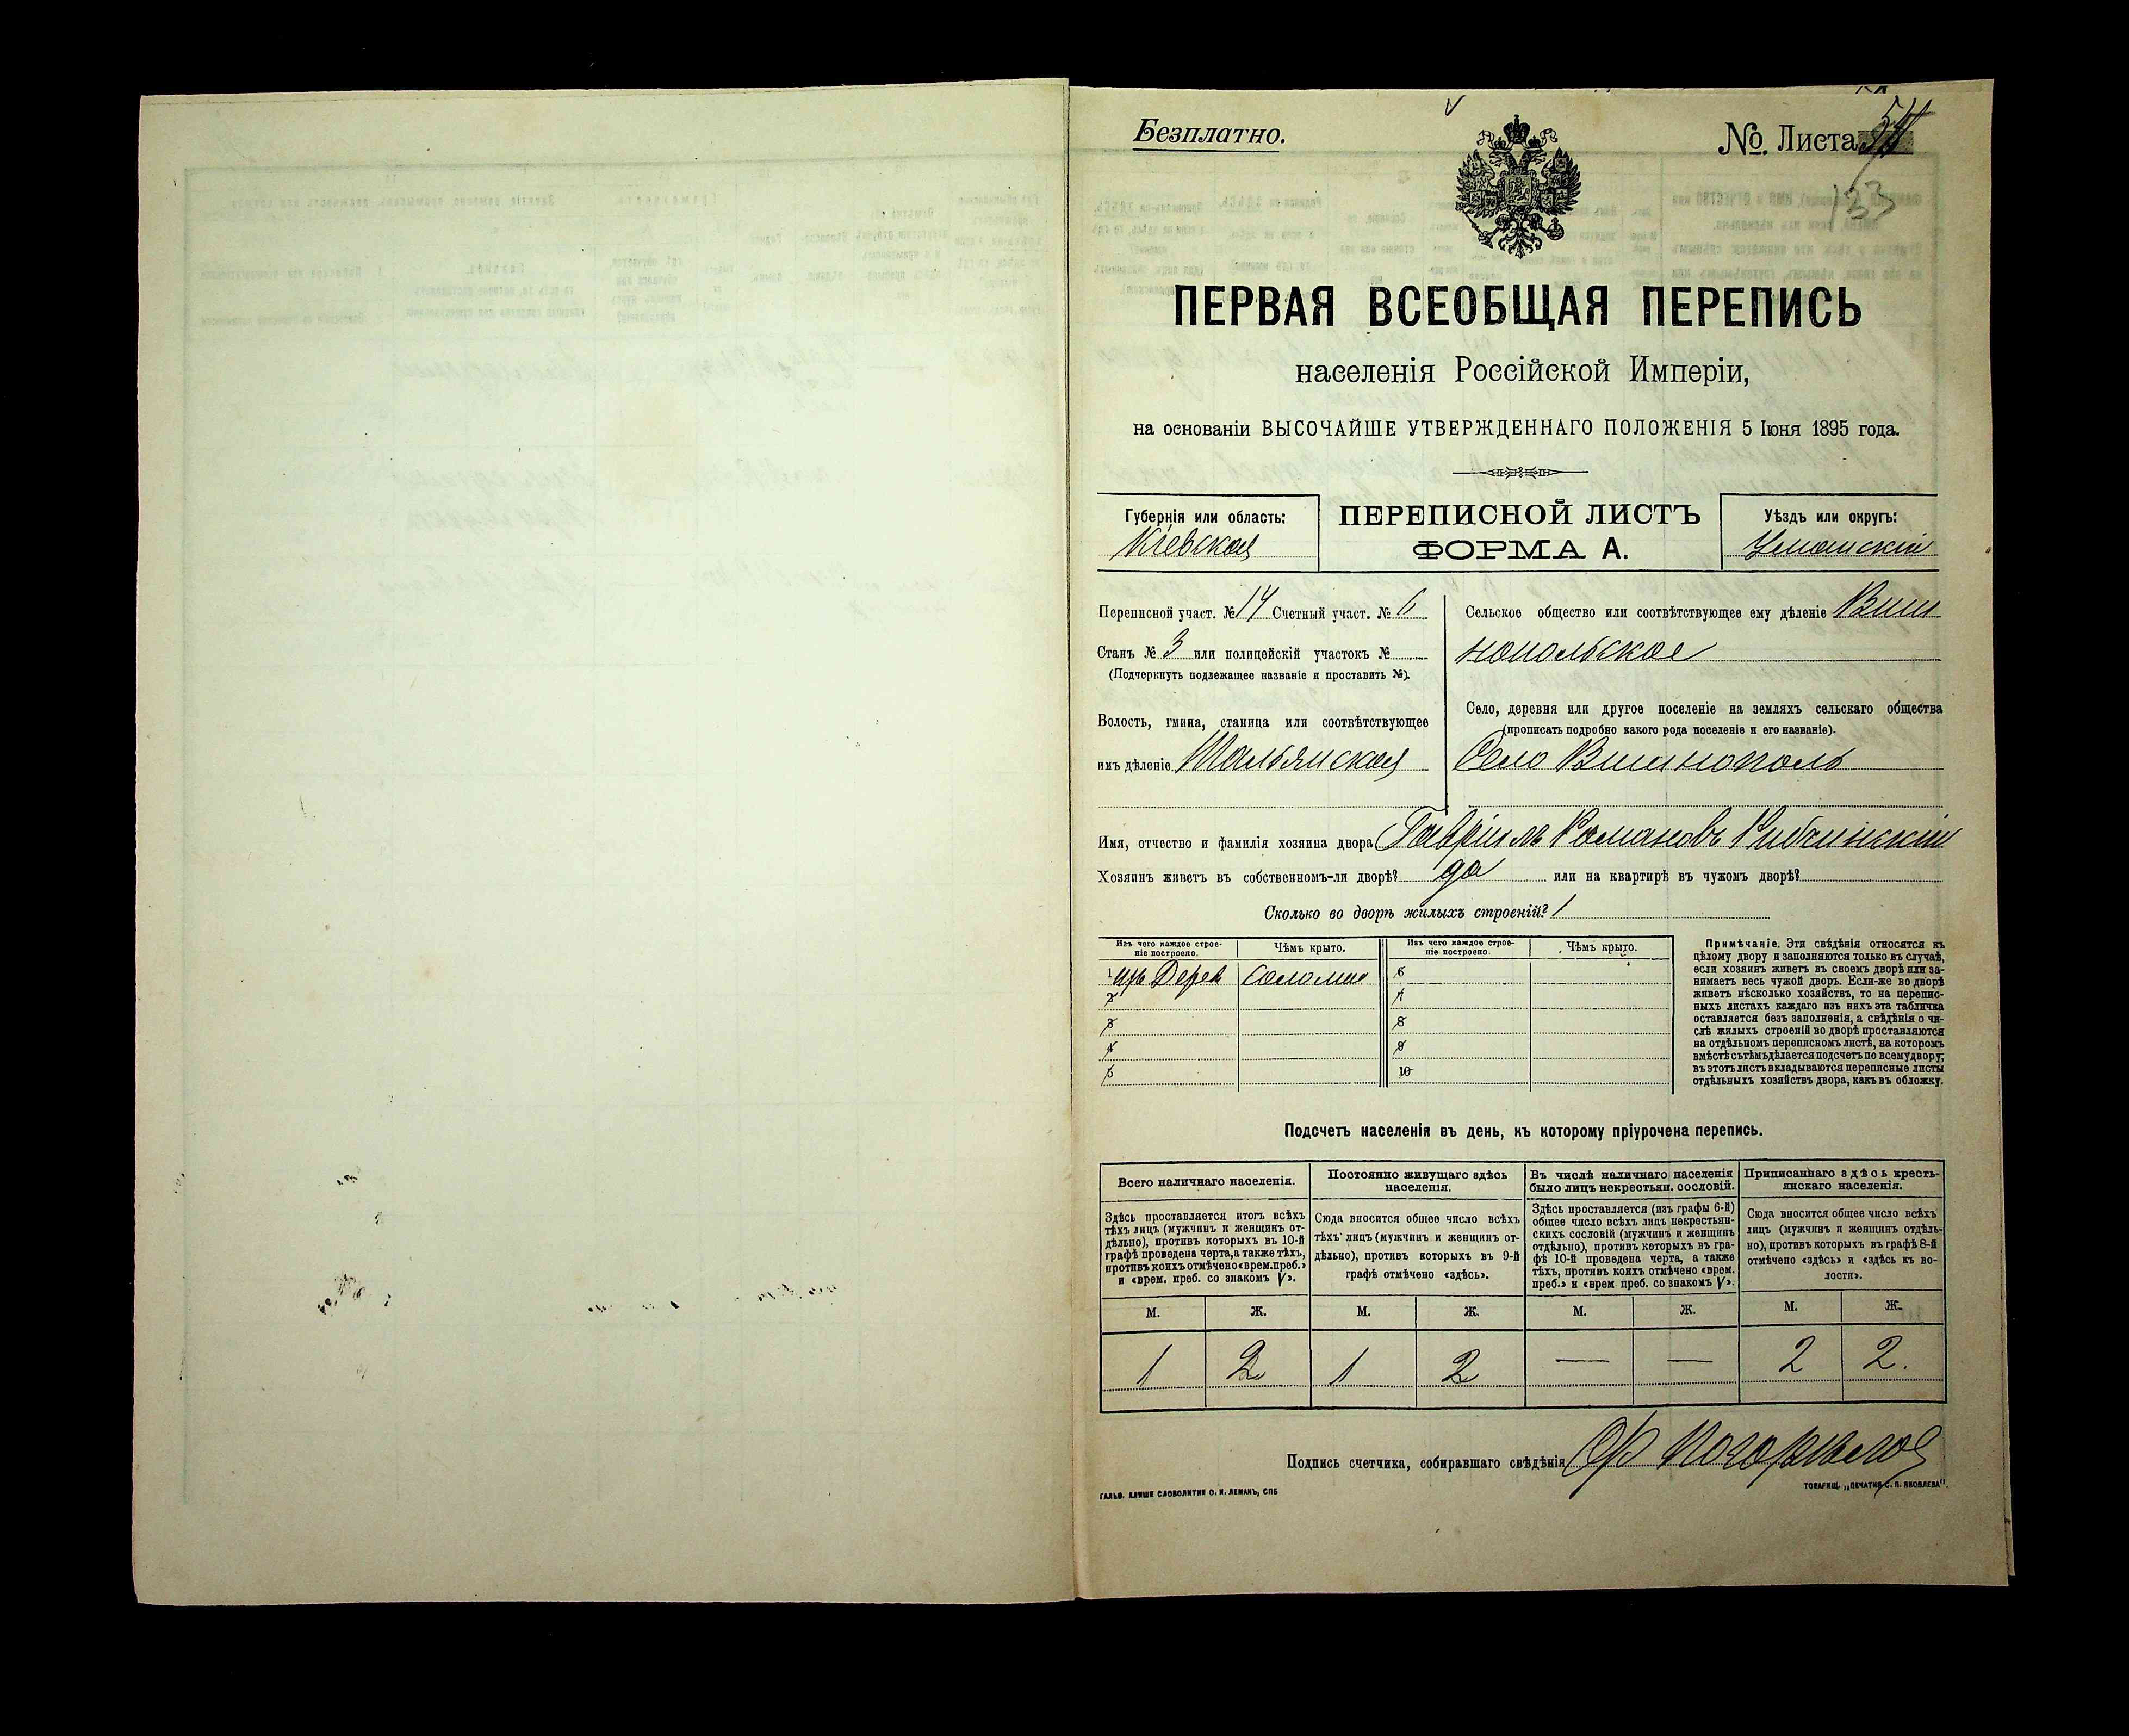 Безплатно.
№. Листа 54
133
ПЕРВАЯ ВСЕОБЩАЯ ПЕРЕПИСЬ
населенія Россійской Имперіи,
на основаніи ВЫСОЧАЙШЕ УТВЕРЖДЕННАГО ПОЛОЖЕНІЯ 5 Іюня 1895 года.
Губернія или область:
Кіевская
ПЕРЕПИСНОЙ ЛИСТЪ
ФОРМА А.
Уѣздъ или округъ:
Уманскій
Переписной участ. № 14 Счетный участ. № 6
Станъ № 3 или полицейскій участокъ №
(Подчеркнуть подлежащее названіе и проставить №).
Волость, гмина, станица или соотвѣтствующее
имъ дѣленіе Шальянская
Сельское общество или соотвѣтствующее ему дѣленіе Виш
нопольское
Село, деревня или другое поселеніе на земляхъ сельскаго общества
(прописать подробно какого рода поселеніе и его названіе).
Село Вишнополь
Имя, отчество и фамилія хозяина двора Гавріилъ Романовъ Рибчинскій
Хозяинъ живетъ въ собственномъ-ли дворѣ? да или на квартирѣ въ чужомъ дворѣ?
Сколько во дворѣ жилыхъ строеній? 1
Изъ чего каждое строе-
ніе построено.
Чѣмъ крыто.
Изъ чего каждое строе-
ніе построено.
Чѣмъ крыто.
1 изъ Дерев Соломы 6
2 7
3 8
4 9
5 10
Примѣчаніе. Эти свѣдѣнія относятся къ
цѣлому двору и заполняются только въ случаѣ,
если хозяинъ живетъ въ своемъ дворѣ или за-
нимаетъ весь чужой дворъ. Если-же во дворѣ
живетъ нѣсколько хозяйствъ, то на перепис-
ныхъ листахъ каждаго изъ нихъ эта табличка
оставляется безъ заполненія, а свѣдѣнія о чи-
слѣ жилыхъ строеній во дворѣ проставляются
на отдѣльномъ переписномъ листѣ, на которомъ
вмѣстѣ съ тѣмъ дѣлается подсчетъ по всему двору;
въ этотъ листъ вкладываются переписные листы
отдѣльныхъ хозяйствъ двора, какъ въ обложку.
Подсчетъ населенія въ день, къ которому пріурочена перепись.
Всего наличнаго населенія.
Здѣсь проставляется итогъ всѣхъ
тѣхъ лицъ (мужчинъ и женщинъ от-
дѣльно), противъ которыхъ въ 10-й
графѣ проведена черта, а также тѣхъ,
противъ коихъ отмѣчено «врем. преб.»
и «врем. преб. со знакомъ V».
Постоянно живущаго здѣсь
населенія.
Сюда вносится общее число всѣхъ
тѣхъ лицъ (мужчинъ и женщинъ от-
дѣльно), противъ которыхъ въ 9-й
графѣ отмѣчено «здѣсь».
Въ числѣ наличнаго населенія
было лицъ некрестьян. сословій.
Здѣсь проставляется (изъ графы 6-й)
общее число всѣхъ лицъ некрестьян-
скихъ сословій (мужчинъ и женщинъ
отдѣльно), противъ которыхъ въ гра-
фѣ 10-й проведена черта, а также
тѣхъ, противъ коихъ отмѣчено «врем.
преб.» и «врем преб. со знакомъ V».
Приписаннаго здѣсь кресть-
янскаго населенія.
Сюда вносится общее число всѣхъ
лицъ (мужчинъ и женщинъ отдѣль-
но), противъ которыхъ въ графѣ 8-й
отмѣчено «здѣсь» и «здѣсь къ во-
лости».
М. Ж. М. Ж. М. Ж. М. Ж.
1 2 1 2 — — 2 2.
Подпись счетчика, собиравшаго свѣдѣнія
ГАЛЬВ. КЛИШЕ СЛОВОЛИТНИ О. И. ЛЕМАНЪ, СПБ
ТОВАРИЩ. „ПЕЧАТНЯ С. П. ЯКОВЛЕВА".